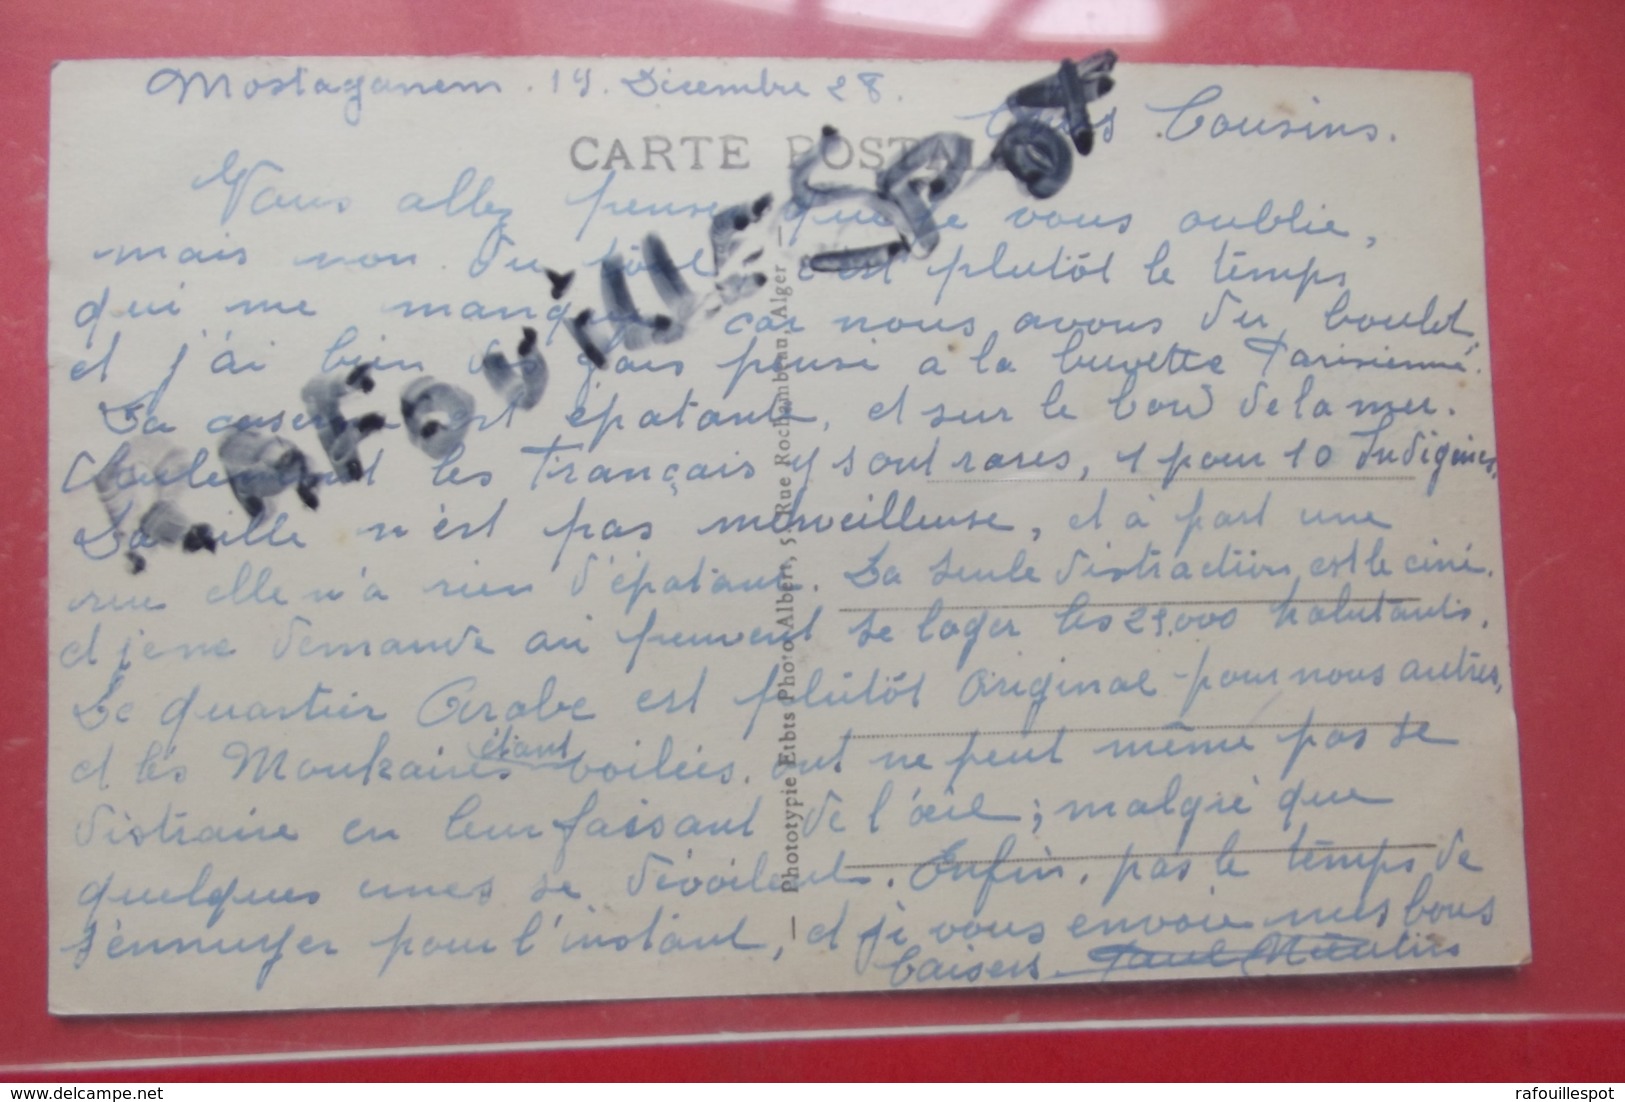 Mostaganem. 19. Décembre 28.
Chers Cousins.
CARTE POSTALE
Vous allez penser que je vous oublie,
mais non. Du tout c'est plutôt le temps
qui me manque car nous avons du boulot.
et j'ai bien des fois pensé a la buvette Parisienne.
La caserne est épatante, et sur le bord de la mer.
Seulement les Français y sont rares, 1 pour 10 Indigènes.
La ville n'est pas merveilleuse, et à part une
rue elle n'a rien d'épatant. La seule distraction, est le ciné.
et je me demande où peuvent se loger les 29.000 habitants.
Le quartier Arabe est plutôt original pour nous autres,
et les Moukaires étant voilées. ont ne peut même pas se
distraire en leur faisant de l'œil; malgré que
quelques unes se dévoilent. Enfin, pas le temps de
s'ennuyer pour l'instant, et je vous envoie mes bons
baisers. Paul
— Phototypie Etbts Photo-Albert, 5, Rue Rochambeau, Alger —
RAFOUILLESPOT
www.delcampe.net
rafouillespot